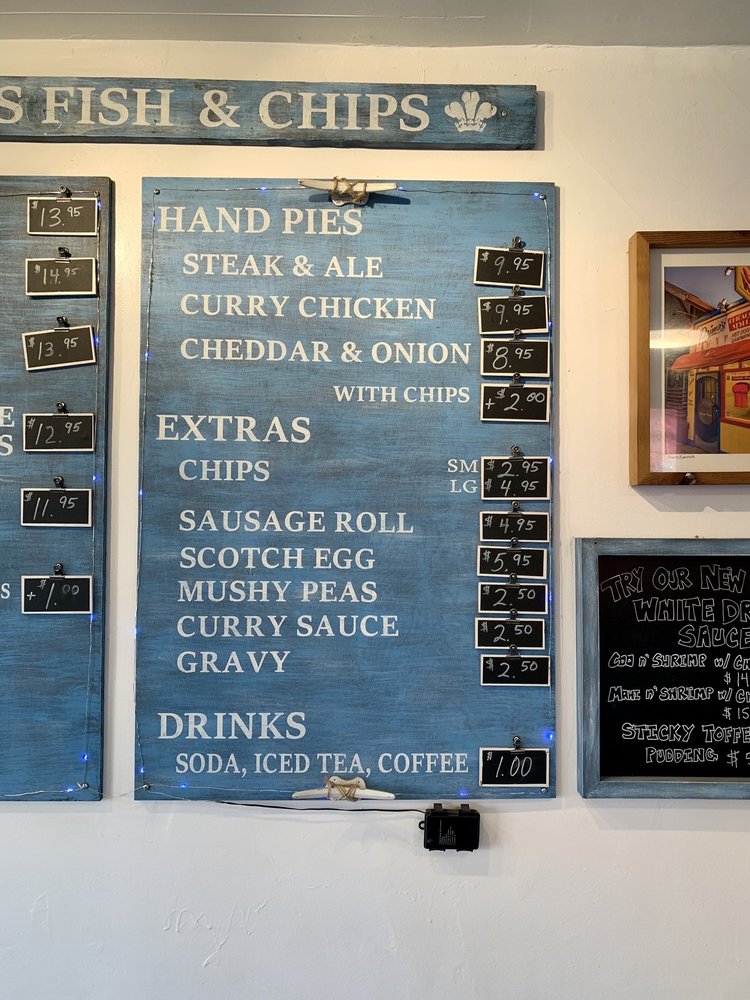 S FISH & CHIPS
$13.95
$14.95
$13.95
E
S
$12.95
$11.95
S
+$1.00
HAND PIES
STEAK & ALE $9.95
CURRY CHICKEN $9.95
CHEDDAR & ONION $8.95
WITH CHIPS +$2.00
EXTRAS
CHIPS SM $2.95
LG $4.95
SAUSAGE ROLL $4.95
SCOTCH EGG $5.95
MUSHY PEAS $2.50
CURRY SAUCE $2.50
GRAVY $2.50
DRINKS
SODA, ICED TEA, COFFEE $1.00
TRY OUR NEW
WHITE DR
SAUCE
COD N' SHRIMP W/ CH
$14
MAHI N' SHRIMP W/ C
$15
STICKY TOFFE
PUDDING $